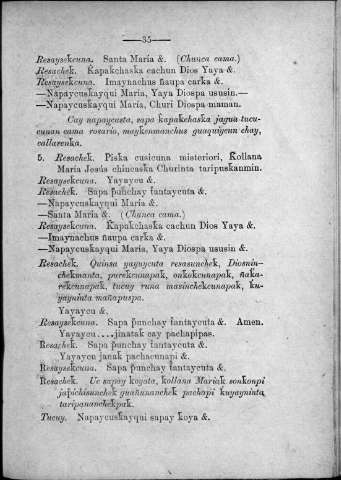 —35—
Resaysekcuna. Santa Maria &. (Chunca cama.)
Resachek. Kapakchaska cachun Dios Yaya &.
Resaysekcuna. Imaynachus ñaupa carka &.
—Napaycuskayqui Maria, Yaya Diospa ususin.—
—Napaycuskayqui Maria, Churi Diospa maman.
Cay napaycusta, sapa kapakchaska
cunan cama rosario, maykenmanchus guaquiycun chay,
callarenka.
5. Resachek. Piska cusicuna misteriori, Kollana
Maria Jesús chincaska Churinta taripuskanmin.
Resaysekcuna. Yayaycu &.
Resachek. Sapa punchay tantaycuta &.
—Napaycuskayqui Maria &.
—Santa Maria &. (Chunca cama.)
Resaysekcuna. Kapakchaska cachun Dios Yaya &.
—Imaynachus ñaupa carka &.
—Napaycuskayqui Maria, Yaya Diospa ususin &.
Resachek. Quinsa yayaycuta resasunchek, Diosmin-
chekmanta, purekcunapak, onkokcunapak, ñaka-
rekcunapak, tucuy runa masinchekcunapak, ku-
yayninta mañapuspa.
Yayaycu &.
Resaysekcuna. Sapa punchay tantaycuta &. Amen.
Yayaycu....jinatak cay pachapipas.
Resachek. Sapa punchay tantaycuta &.
Yayaycu janak pachacunapi &.
Resaysekcuna. Sapa punchay tantaycuta &.
Resachek. Uc sapay koyata, kollana Mariak sonkonpi
japichisunchek guañunanchek pachapi kuyayninta
taripananchekpak.
Tucuy. Napaycuskayqui sapay koya &.